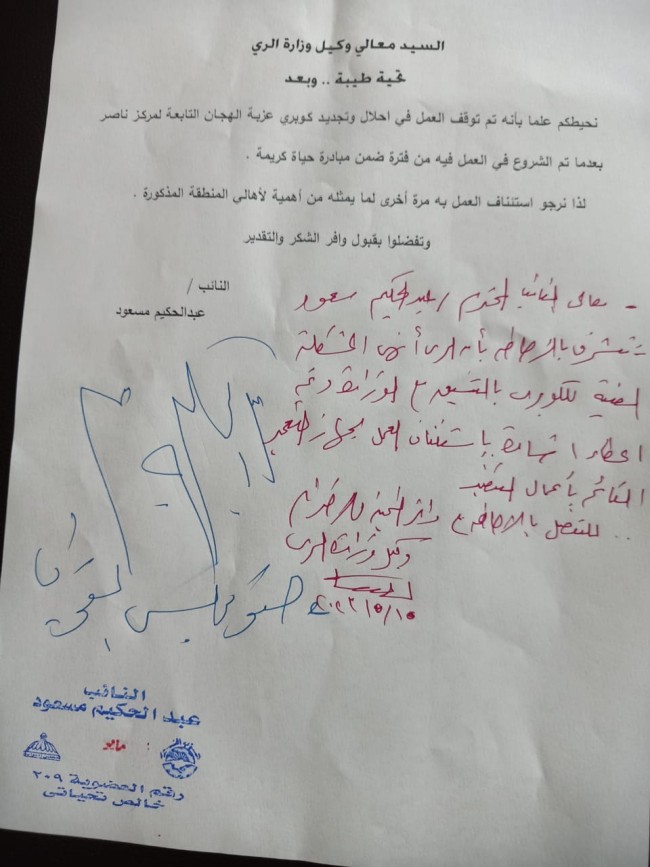 السيد معالي وكيل وزارة الري
تحية طيبة .. وبعد
نحيطكم علما بأنه تم توقف العمل في احلال وتجديد كوبري عزبة الهجان التابعة لمركز ناصر
بعدما تم الشروع في العمل فيه من فترة ضمن مبادرة حياة كريمة .
لذا نرجو استئناف العمل به مرة أخرى لما يمثله من أهمية لأهالي المنطقة المذكورة .
وتفضلوا بقبول وافر الشكر والتقدير
النائب /
عبدالحكيم مسعود
- معالى النائب المحترم / عبد الحكيم مسعود
نتشرف بالإحاطة بأنه جرى أنهاء المشكلة
الفنية للكوبرى بالتنسيق مع الوزارة وتم
اعطاء اشارة بإستئناف العمل لجهاز التعمير
القائم بأعمال التنفيذ
.. للتفضل بالاحاطة مع وافر التحية والاحترام
وكيل وزارة الرى
٢٠٢٣/٥/١٥
النائب
عبد الحكيم مسعود
مايو
رقم العضوية ٢٠٩
خالص تحياتى